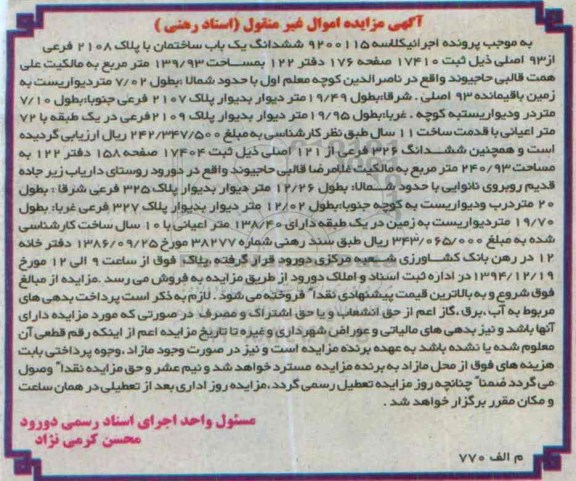 آگهی مزایده اموال غیر منقول (اسناد رهنی )
به موجب پرونده اجرائیکلاسه ۹۲۰۰۱۱۵ ششدانگ یک باب ساختمان با پلاک ۲۱۰۸ فرعی
از۹۳ اصلی ذیل ثبت ۱۷۴۱۰ صفحه ۱۷۶ دفتر ۱۲۲ بمساحت ۱۳۹/۹۳ متر مربع به مالکیت علی
همت قالبی حاجیوند واقع در ناصرالدین کوچه معلم اول با حدود شمالا :بطول ۷/۰۲ متردیواریست به
زمین باقیمانده ۹۳ اصلی . شرقا:بطول ۱۹/۴۹متر دیوار بدیوار پلاک ۲۱۰۷ فرعی جنوبا:بطول ۷/۱۰
متردر ودیواریستبه کوچه . غربا:بطول ۱۹/۹۵متر دیوار بدیوار پلاک ۲۱۰۹فرعی در یک طبقه با ۷۲
متر اعیانی با قدمت ساخت ۱۱ سال طبق نظر کارشناسی به مبلغ ۲۴۲/۳۴۷/۵۰۰ ریال ارزیابی گردیده
است و همچنین ششدانگ ۳۲۶ فرعی از ۱۲۱ اصلی ذیل ثبت ۱۷۴۰۴ صفحه ۱۵۸ دفتر ۱۲۲ به
مساحت ۲۴۰/۹۳ متر مربع به مالکیت غلامرضا قالبی حاجیوند واقع در دورود روستای داریاب زیر جاده
قدیم روبروی نانوایی با حدود شمالا: بطول ۱۲/۲۶ متر دیوار بدیوار پلاک ۳۲۵ فرعی شرقا : بطول
۲۰ متردرب ودیواریست به کوچه جنوبا:بطول ۱۲/۰۲ متر دیوار بدیوار پلاک ۳۲۷ فرعی غربا: بطول
۱۹/۷۰ متردیواریست به زمین در یک طبقه دارای ۱۳۸/۴۰ متر اعیانی با ۱۰ سال ساخت کارشناسی
شده به مبلغ ۳۴۳/۰۶۵/۰۰۰ ریال طبق سند رهنی شماره ۳۸۲۷۷ مورخ ۱۳۸۶/۰۹/۲۵ دفتر خانه
۱۲ در رهن بانک کشاورزی شعبه مرکزی دورود قرار گرفته .پلاک فوق از ساعت ۹ الی ۱۲ مورخ
۱۳۹۴/۱۲/۱۹ در اداره ثبت اسناد و املاک دورود از طریق مزایده به فروش می رسد .مزایده از مبالغ
فوق شروع و به بالاترین قیمت پیشنهادی نقدا" فروخته می شود . لازم به ذکر است پرداخت بدهی های
مربوط به آب ،برق ،گاز اعم از حق انشعاب و یا حق اشتراک و مصرف در صورتی که مورد مزایده دارای
آنها باشد و نیز بدهی های مالیاتی و عوراض شهرداری و غیره تا تاریخ مزایده اعم از اینکه رقم قطعی آن
معلوم شده یا نشده باشد به عهده برنده مزایده است و نیز در صورت وجود مازاد ،وجوه پرداختی بابت
هزینه های فوق از محل مازاد به برنده مزایده مسترد خواهد شد و نیم عشر و حق مزایده نقدا" وصول
می گردد ضمنا" چنانچه روز مزایده تعطیل رسمی گردد ،مزایده روز اداری بعد از تعطیلی در همان ساعت
و مکان مقرر برگزار خواهد شد .
مسئول واحد اجرای اسناد رسمی دورود
محسن کرمی نژاد
م الف ۷۷۰